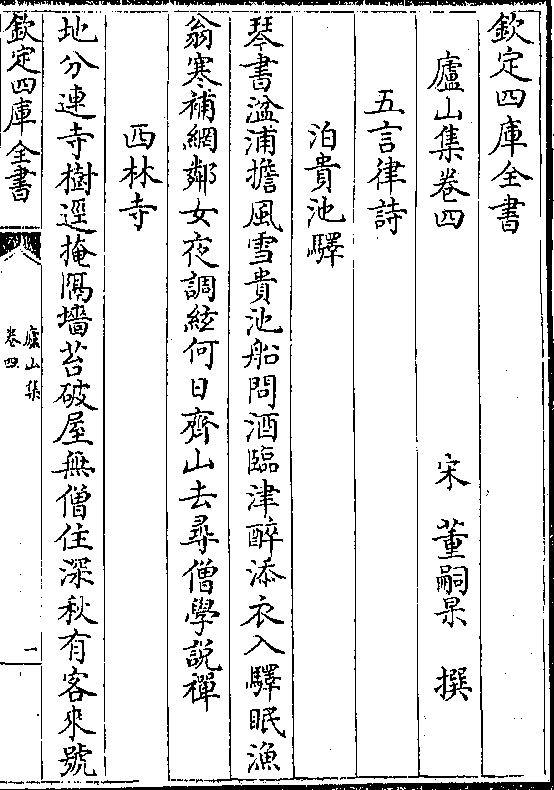 欽定四庫全書
廬山集卷四
宋 董嗣杲 撰
五言律詩
泊貴池驛
琴書湓浦擔風雪貴池船問酒臨津醉添衣入驛眠漁
翁寒補網鄰女夜調絃何日齊山去尋僧學說禪
西林寺
地分連寺樹逕掩隔墻苔破屋無僧住深秋有客來號
欽定四庫全書
廬山集
卷四
一